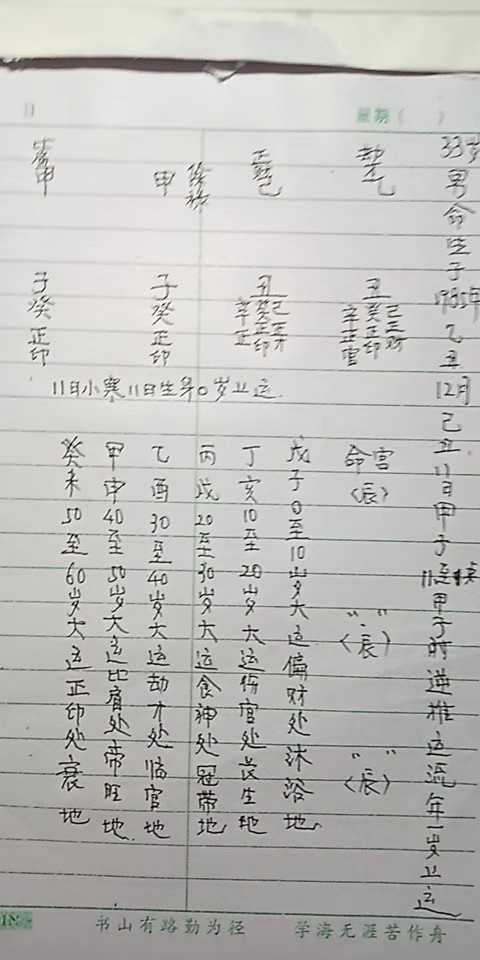 星期（ ）
33岁男命生于1985年乙丑12月己丑11日甲子11点甲子时逆推运流年一岁上运
劫才乙
正财己
修标
甲
甲
丑
己正财
癸正印
辛正官
丑
己正才
癸正印
辛正
子癸正印
子癸正印
11日小寒11日生年0岁上运
命宫〈辰〉
〃〈辰〉
〃〈辰〉
戊子0至10岁大运偏财处沐浴地
丁亥10至20岁大运伤官处长生地
丙戌20至30岁大运食神处冠带地
乙酉30至40岁大运劫才处临官地
甲申40至50岁大运比肩处帝旺地
癸未50至60岁大运正印处衰地
书山有路勤为径 学海无涯苦作舟